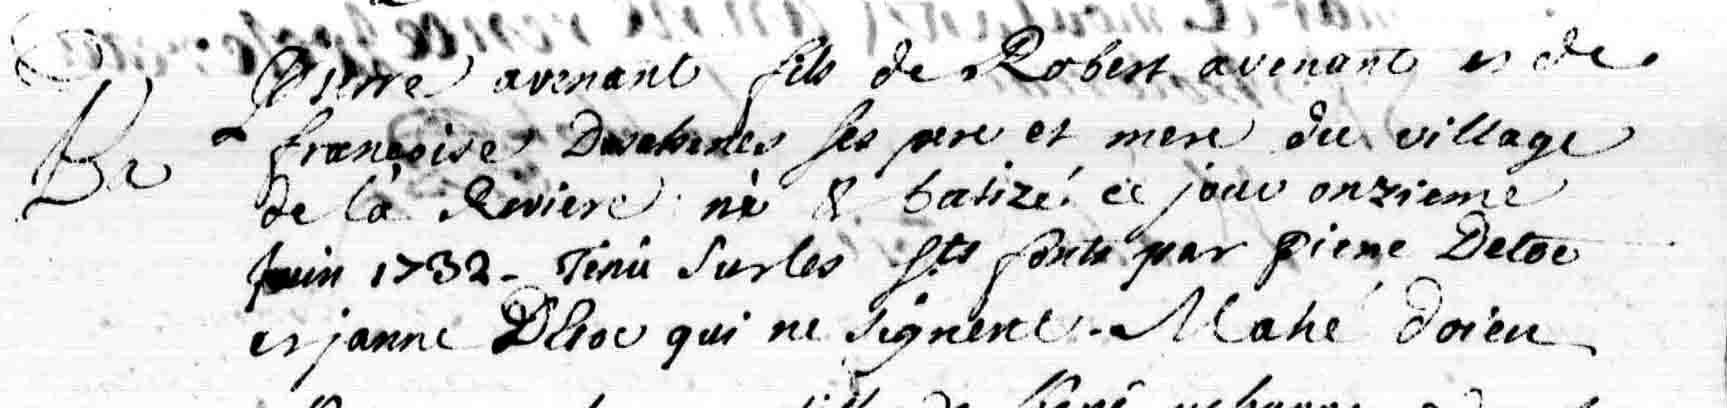 Pierre avenant fils de Robert avenant et de
françoise ses pere et mere du village
de la Reviere né & batizé ce jour onzieme
Juin 1732 - Tenù sur les sts fonts par pierre Deloe
et janne qui ne signent - Mahé doien
Ba